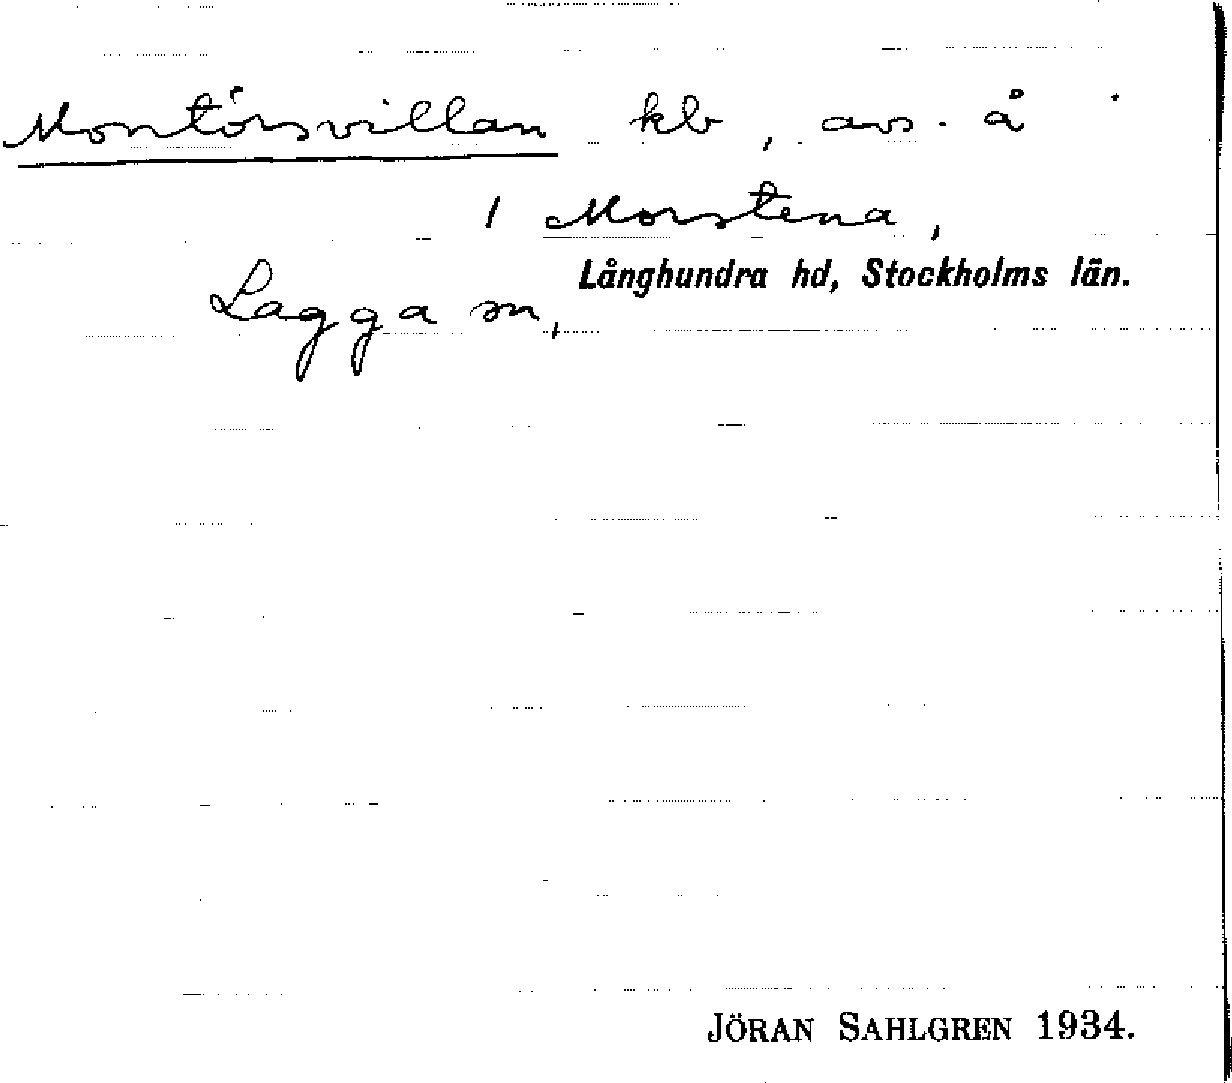 Montörsvillan kb, avs. å
1 Morstena,
Långhundra hd, Stockholms län.
Lagga sn,
JÖRAN SAHLGREN 1934.